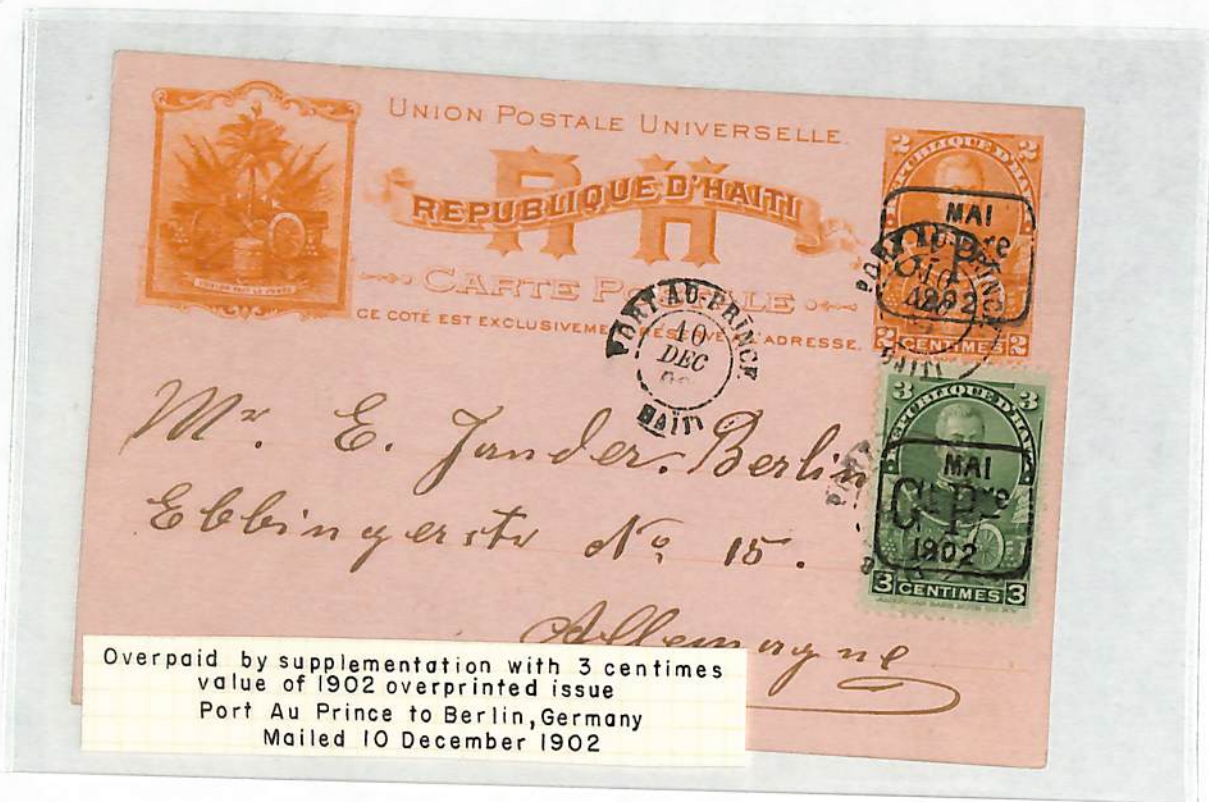 UNION POSTALE UNIVERSELLE.
RH
REPUBLIQUE D'HAITI
CARTE POSTALE
CE COTÉ EST EXCLUSIVEMENT RÉSERVÉ À L'ADRESSE.
L'UNION FAIT LA FORCE
2 2
REPUBLIQUE D'HAITI
MAI
Gt Pre
1902
2 CENTIMES 2
PORT AU-PRINCE
10
DEC
HAÏTI
PORT AU-PRINCE.
10
DEC
HAÏTI
3 3
REPUBLIQUE D'HAITI
MAI
Gt Pre
1902
3 CENTIMES 3
Mr. E. Jander. Berlin
Ebbingerstr No 15.
Allemagne
Overpaid by supplementation with 3 centimes
value of 1902 overprinted issue
Port Au Prince to Berlin, Germany
Mailed 10 December 1902